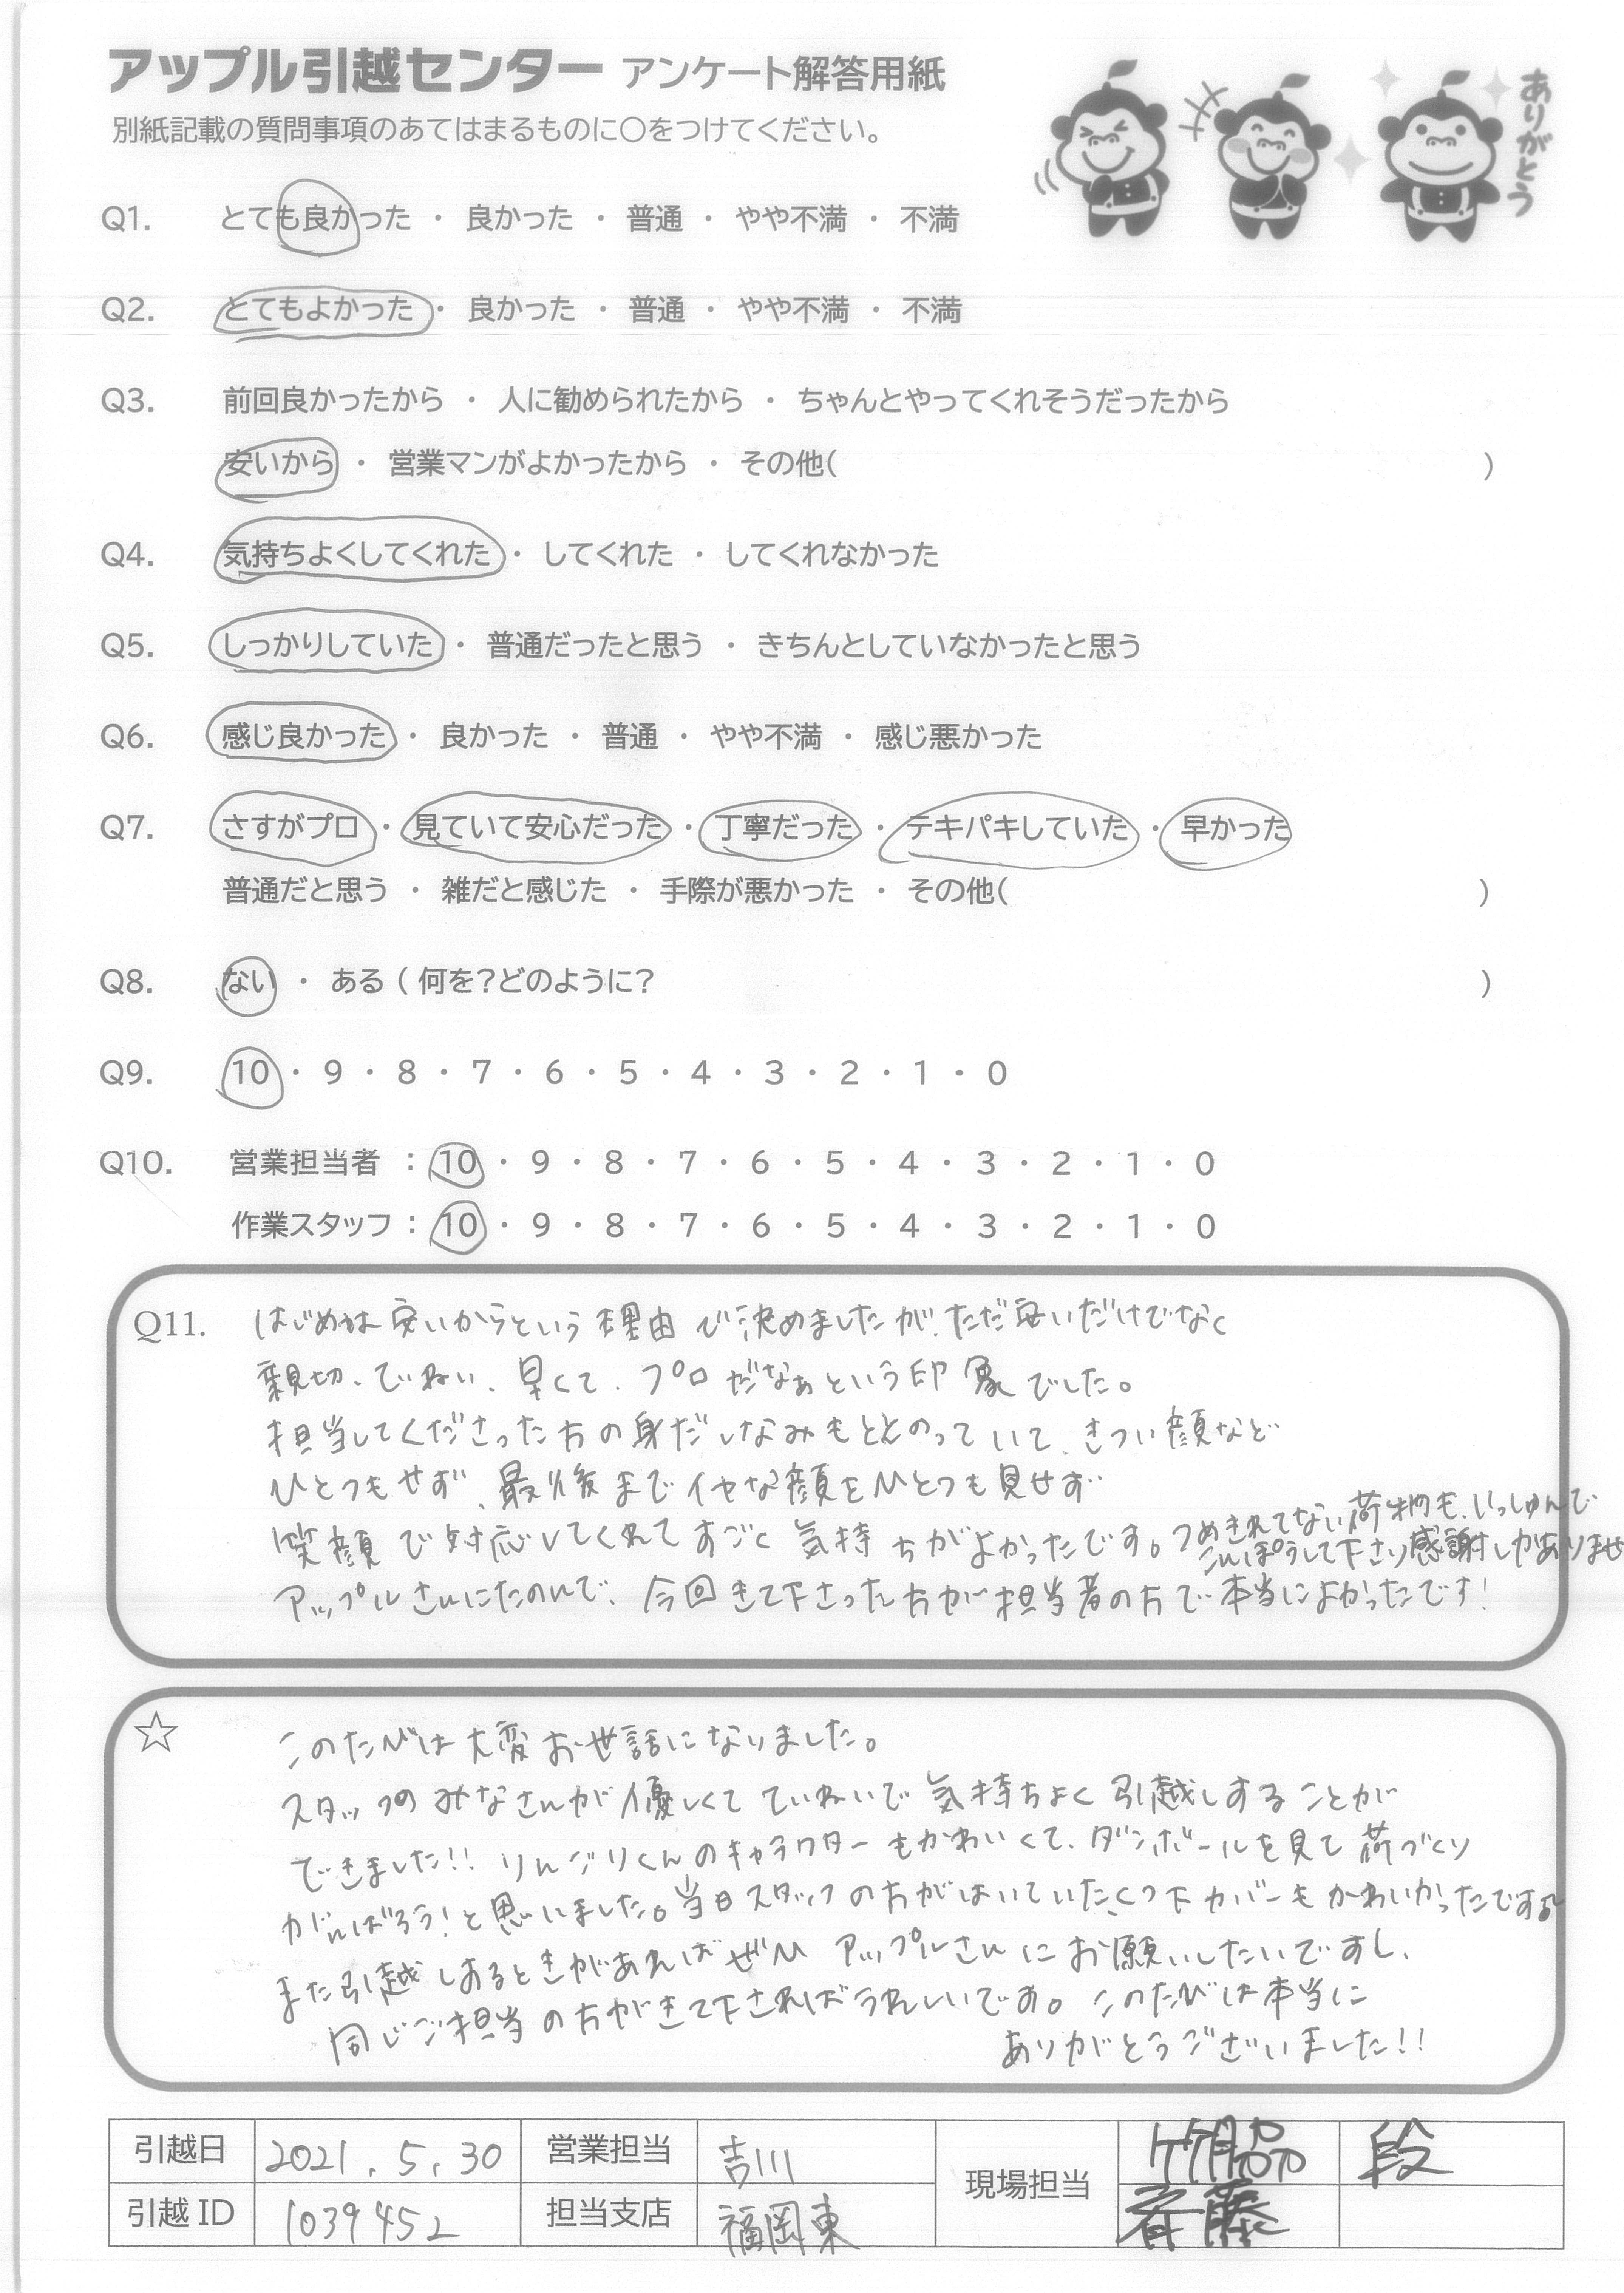 アップル引越センター アンケート解答用紙
別紙記載の質問事項のあてはまるものに○をつけてください。
ありがとう
Q1. とても良かった ・ 良かった ・ 普通 ・ やや不満 ・ 不満
Q2. とてもよかった ・ 良かった ・ 普通 ・ やや不満 ・ 不満
Q3. 前回良かったから ・ 人に勧められたから ・ ちゃんとやってくれそうだったから
安いから ・ 営業マンがよかったから ・ その他( )
Q4. 気持ちよくしてくれた ・ してくれた ・ してくれなかった
Q5. しっかりしていた ・ 普通だったと思う ・ きちんとしていなかったと思う
Q6. 感じ良かった ・ 良かった ・ 普通 ・ やや不満 ・ 感じ悪かった
Q7. さすがプロ ・ 見ていて安心だった ・ 丁寧だった ・ テキパキしていた ・ 早かった
普通だと思う ・ 雑だと感じた ・ 手際が悪かった ・ その他( )
Q8. ない ・ ある ( 何を？どのように？ )
Q9. 10 ・ 9 ・ 8 ・ 7 ・ 6 ・ 5 ・ 4 ・ 3 ・ 2 ・ 1 ・ 0
Q10. 営業担当者 ： 10 ・ 9 ・ 8 ・ 7 ・ 6 ・ 5 ・ 4 ・ 3 ・ 2 ・ 1 ・ 0
作業スタッフ ： 10 ・ 9 ・ 8 ・ 7 ・ 6 ・ 5 ・ 4 ・ 3 ・ 2 ・ 1 ・ 0
Q11. はじめは安いからという理由で決めましたが、ただ安いだけでなく
親切、ていねい、早くて、プロだなぁという印象でした。
担当してくださった方の身だしなみもととのっていて、きつい顔など
ひとつもせず、最後までイヤな顔をひとつも見せず
笑顔で対応してくれてすごく気持ちがよかったです。つめきれてない荷物も、いっしゅんで
こんぽうして下さり感謝しかありませ
アップルさんにたのんで、今回きて下さった方が担当者の方で本当によかったです！
☆ このたびは大変お世話になりました。
スタッフのみなさんが優しくてていねいで気持ちよく引越しすることが
できました!! りんごりくんのキャラクターもかわいくて、ダンボールを見て荷づくり
がんばろう！と思いました。当日スタッフの方がはいていたくつ下カバーもかわいかったです
また引越しするときがあればぜひアップルさんにお願いしたいですし、
同じご担当の方がきて下さればうれしいです。このたびは本当に
ありがとうございました!!
引越日 2021.5.30 営業担当 吉川 現場担当 竹脇 段
引越ID 1039452 担当支店 福岡東 斉藤